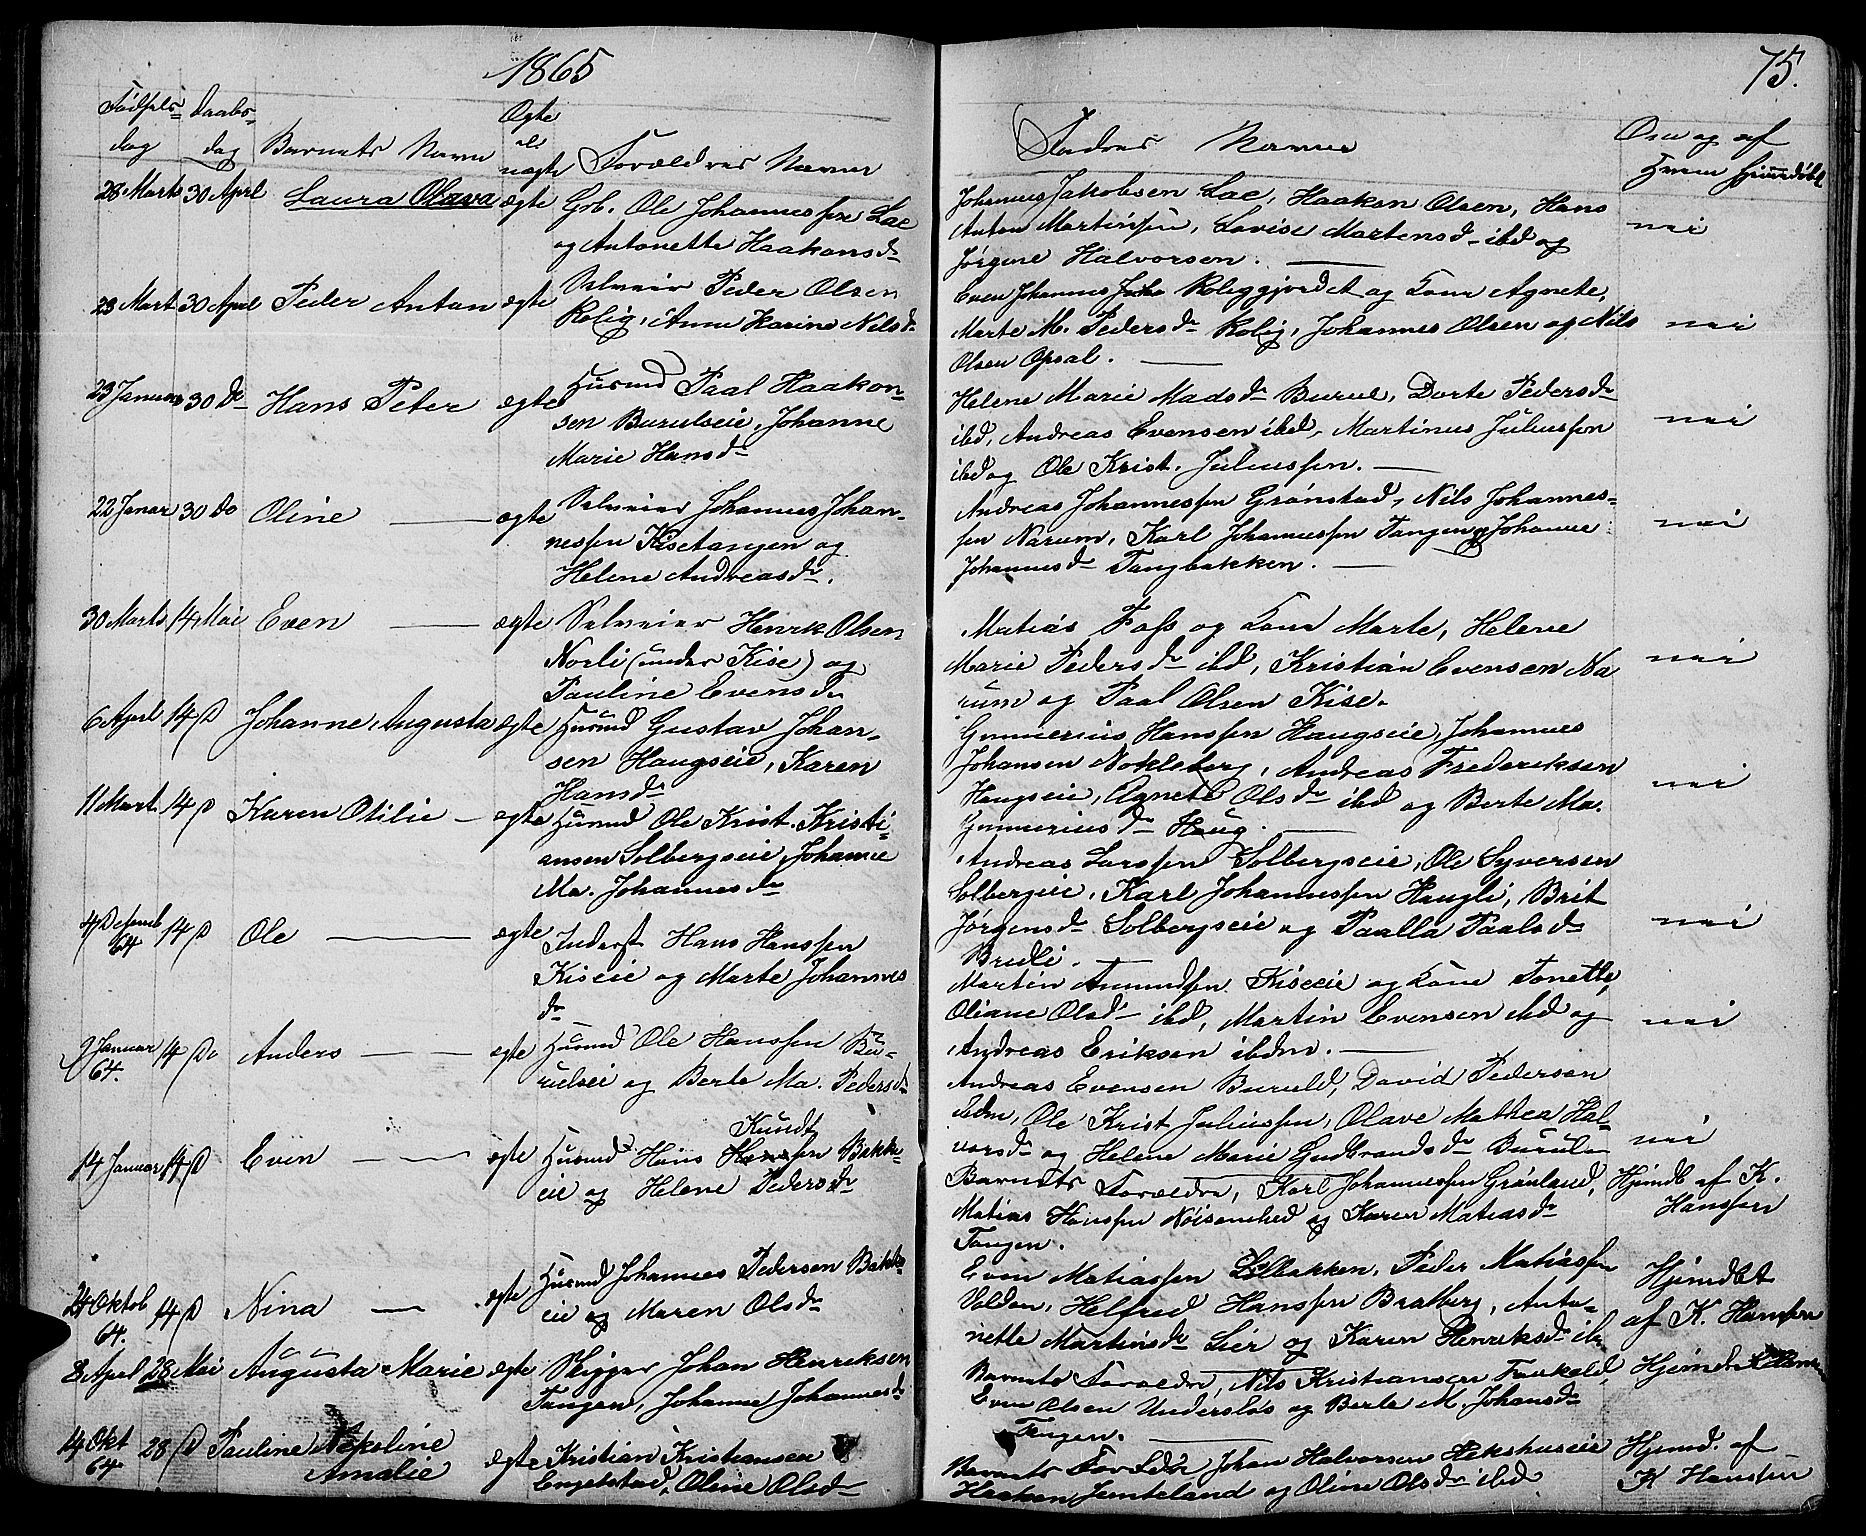 1865
Fødsels- Daabs- Ægte
dag dag Barnets Navn uægte Forældres Navne
28 Marts 30 April Laura Olava ægte Gb. Ole Johannessen Lae
og Antonette Haakonsd
23 Mart 30 April Peder Anton ægte Selveier Peder Olsen
Rolig, Anne Karine Nilsd
23 Januar 30 Do Hans Peter ægte Husmd Paal Haakon-
sen Burulseie, Johanne
Marie Hansd
22 Januar 30 Do Oline — ægte Selveier Johannes Johan-
nessen Kisetangen og
Helene Andreasd.
30 Marts 14 Mai Even — ægte Selveier Henrik Olsen
Norli (under Kise) og
Pauline Evensd
6 April 14 D Johanne Augusta ægte Husmd Gustav Johan-
sen Haugseie, Karen
Hansd
11 Mart. 14 D Karen Otilie — ægte Husmd Ole Krist. Kristi-
ansen Solbergseie, Johanne
Ma. Johannesd
4 Desemb 64 14 D Ole — ægte Inderst Hans Hanssen
Kiseeie og Marte Johannes
d
9 Januar 64. 14 Do Anders — ægte Husmd Ole Hanssen Bu-
rulseie og Berte Ma. Pedersd
Knudt
14 Januar 14 D Even — ægte Husmd Hans Hanssen Bakke-
eie og Helene Pedersd
24 Oktob 64. 14 D Nina — ægte Husmd Johannes Pedersen Bakke
eie og Maren Olsd
8 April 28 Mai Augusta Marie ægte Skigger Johan Henriksen
Tangen, Johanne Johannesd
14 Okt 64 28 D Pauline Nikoline ægte Kristian Kristiansen
Amalie Engelstad, Oline Olsd
75.
Fadres Navne Om og af
Hvem hjemdøbt
Johannes Jakobsen Lae, Haakon Olsen, Hans
Anton Martinsen, Lovise Martensd ibd og nei
Jørgine Halvorsen. —
Even Johannes Roliggjordet og Kone Agnete,
Marte M. Pedersd Rolig, Johannes Olsen og Nils nei
Olsen Opsal. —
Helene Marie Madsd Burul, Dorte Pedersd
ibd, Andreas Evensen ibd, Martinus Juliussen nei
ibd og Ole Krist. Juliussen. —
Andreas Johannessen Grønstad, Nils Johannes-
sen Narum, Karl Johannessen Tangen og Johanne nei
Johannesd Tangbakken. —
Matias Foss og Kone Marte, Helene
Marie Pedersd ibd, Kristian Evensen Na nei
rum og Paal Olsen Kise.
Gunnerius Hanssen Haugseie, Johannes
Johansen Nokleberg, Andreas Frederiksen
Haugseie, Agnete Olsd ibd og Berte Ma. nei
Gunneriusd Haug. —
Andreas Larssen Solbergseie, Ole Syversen
Solbergeie, Karl Johannessen Haugli, Brit
Jørgensd Solbergseie og Paalla Paalsd nei
Brudli.
Martin Amundsen Kiseeie og Kone Tonette,
Oliane Olsd ibd, Martin Evensen ibd og nei
Andreas Eriksen ibdm. —
Andreas Evensen Buruld, David Pedersen
ibdm, Ole Krist Juliussen, Olave Mathea Hal-
vorsd og Helene Marie Gudbrandsd Burul nei
Barnets Forældre, Karl Johannessen Grønland, Hjemdb af K.
Matias Hanssen Nøisomhed og Karen Matiasd Hanssen
Tangen.
Even Matiassen Lilbakken, Peder Matiassen Hjemdbt
Volden, Helfred Hanssen Bratberg, Anto-
nette Martinsd Lier og Karen Henriksd ib af K. Hanssen
Barnets Forældre, Nils Kristiansen Faukald, Hjemdb K Hans
Even Olsen Undersløs og Berte M. Johansd
Tangen. —
Barnets Forældr Johan Halvorsen Hekshuseie Hjemd. af
Haakon Jemteland og Oline Olsd ibd K Hanssen